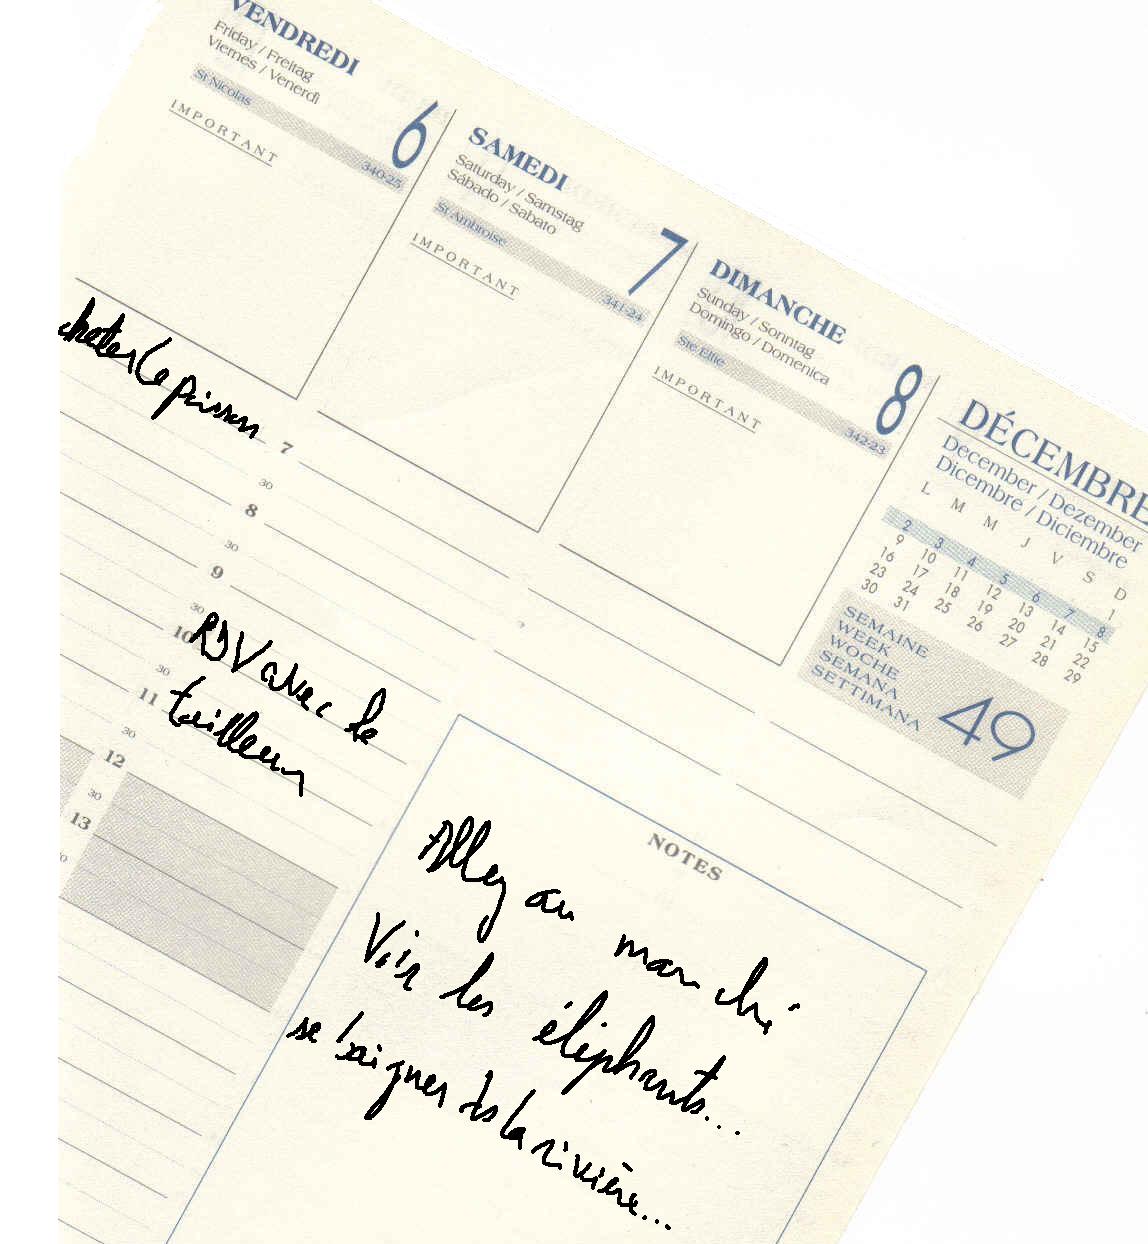 VENDREDI
Friday / Freitag
Viernes / Venerdì
6
St Nicolas
340-25
IMPORTANT
SAMEDI
Saturday / Samstag
Sábado / Sabato
7
St Ambroise
341-24
IMPORTANT
DIMANCHE
Sunday / Sonntag
Domingo / Domenica
8
Ste Elfie
342-23
IMPORTANT
DÉCEMBRE
December / Dezember
Dicembre / Diciembre
L M M J V S D
1
2 3 4 5 6 7 8
9 10 11 12 13 14 15
16 17 18 19 20 21 22
23 24 25 26 27 28 29
30 31
SEMAINE
WEEK
WOCHE
SEMANA
SETTIMANA
49
cheter le poisson
7
30
8
30
9
30
10
RDV avec le
30
11
tailleur
30
12
30
13
30
NOTES
Aller au marché
Voir les éléphants...
se baigner ds la rivière...